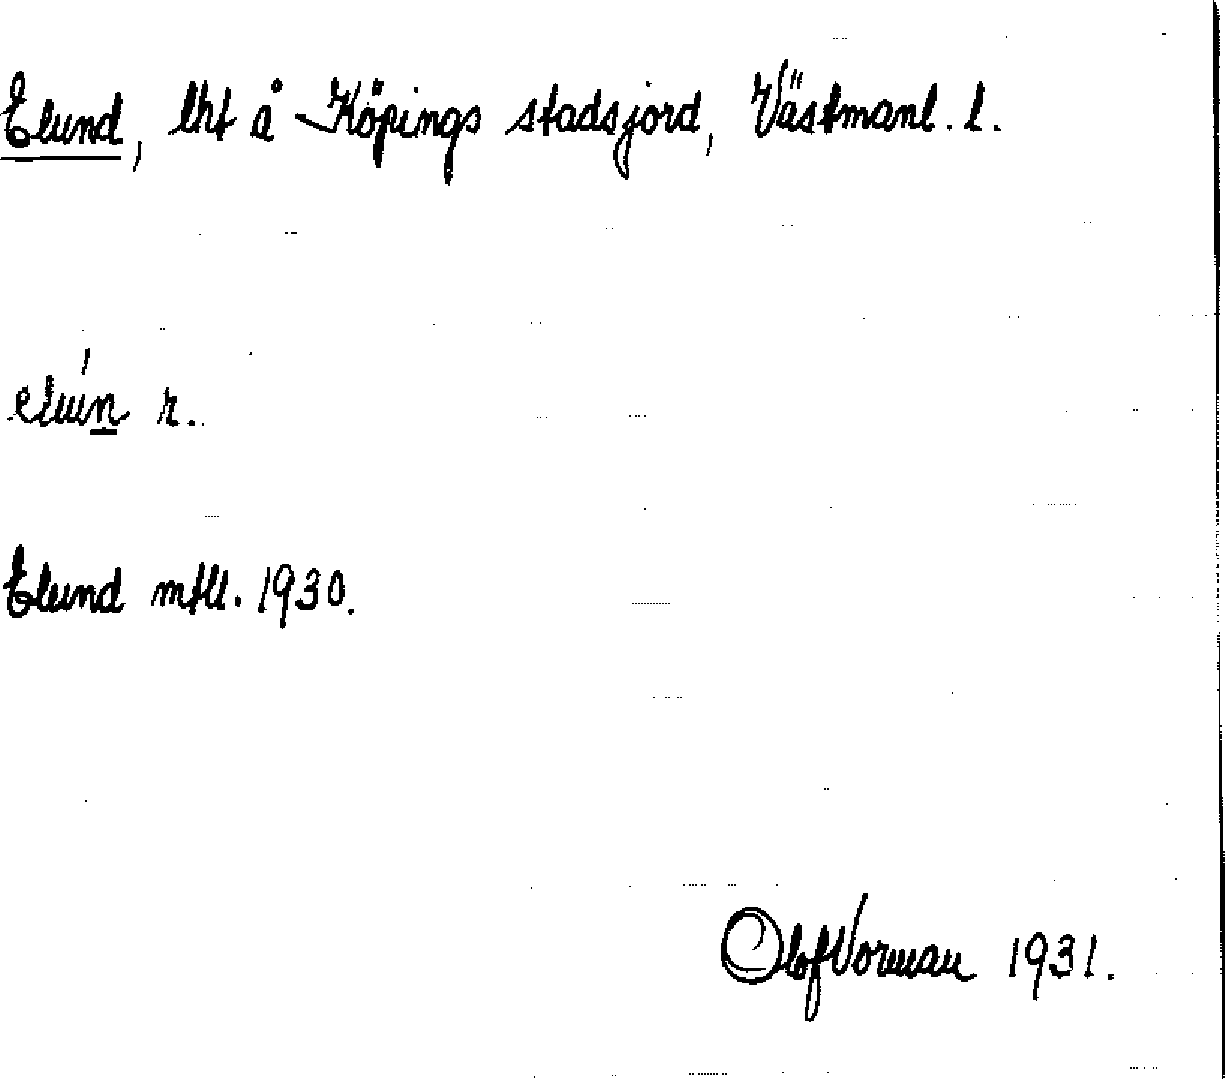 Elund, lht å Köpings stadsjord, Västmanl. l.
r.
Elund mtll. 1930.
Olof Vorman 1931.